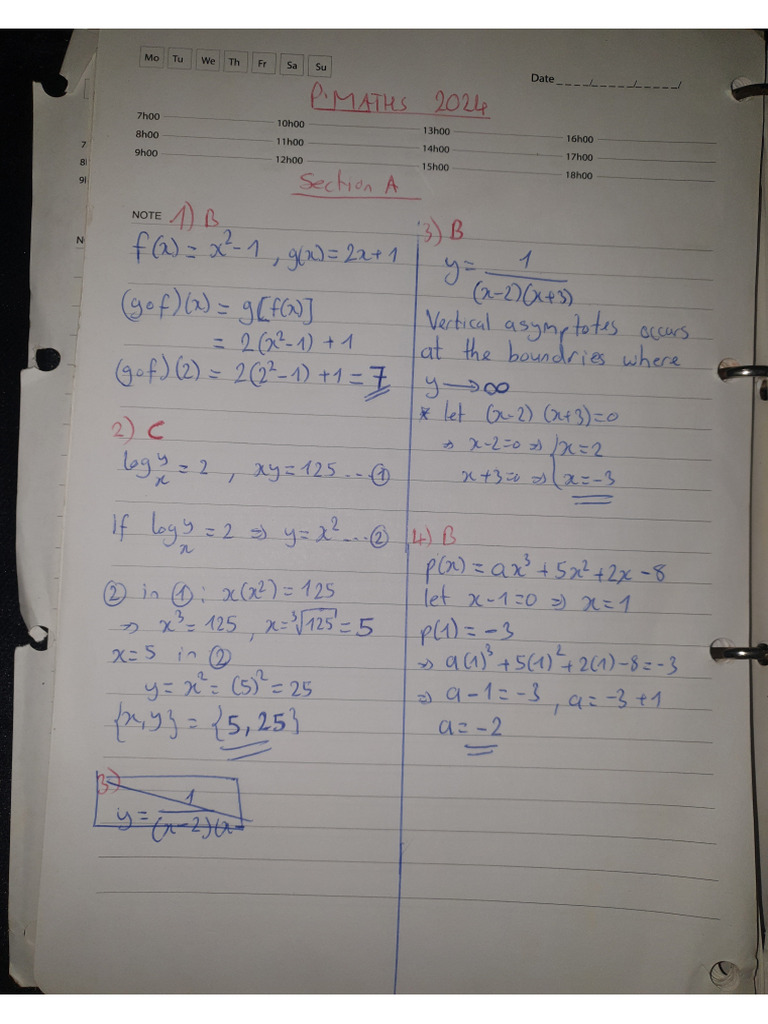 Mo Tu We Th Fr Sa Su
Date _ _ _ _/_ _ _ _ _/_ _ _ _ _/
P.MATHS 2024
7h00 10h00 13h00 16h00
8h00 11h00 14h00 17h00
9h00 12h00 15h00 18h00
Section A
NOTE
1) B
f(x) = x²-1 , g(x) = 2x+1
(gof)(x) = g[f(x)]
= 2(x²-1) + 1
(gof)(2) = 2(2²-1) + 1 = 7
2) C
logₓy = 2 , xy = 125 ... ①
If logₓy = 2 ⇒ y = x² ... ②
② in ①: x(x²) = 125
⇒ x³ = 125 , x = ∛125 = 5
x = 5 in ②
y = x² = (5)² = 25
{x,y} = {5,25}
3)
y = 1/(x-2)(x
3) B
y = 1/(x-2)(x+3)
Vertical asymptotes occurs
at the boundries where
y → ∞
* let (x-2)(x+3)=0
⇒ x-2=0 ⇒ x=2
x+3=0 ⇒ x=-3
4) B
p(x) = ax³ + 5x² + 2x - 8
let x-1=0 ⇒ x=1
p(1) = -3
⇒ a(1)³ + 5(1)² + 2(1) - 8 = -3
⇒ a-1 = -3 , a = -3+1
a = -2